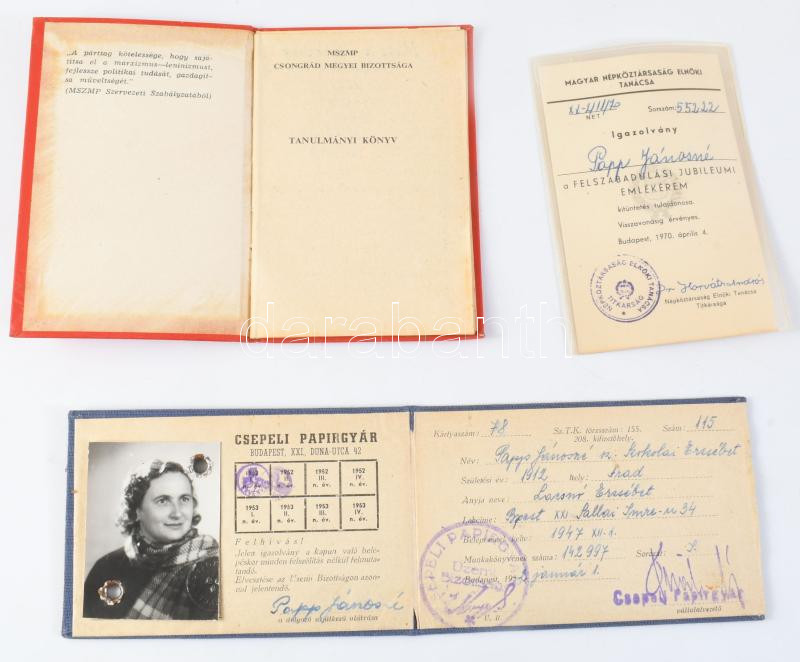 „A párttag kötelessége, hogy sajá-
títsa el a marxizmus—leninizmust,
fejlessze politikai tudását, gazdagít-
sa műveltségét."
(MSZMP Szervezeti Szabályzatából)
MSZMP
CSONGRÁD MEGYEI BIZOTTSÁGA
TANULMÁNYI KÖNYV
MAGYAR NÉPKÖZTÁRSASÁG ELNÖKI
TANÁCSA
NET. Sorszám: 55222
Igazolvány
Papp Jánosné
a FELSZABADULÁSI JUBILEUMI
EMLÉKÉREM
kitüntetés tulajdonosa.
Visszavonásig érvényes.
Budapest, 1970. április 4.
NÉPKÖZTÁRSASÁG ELNÖKI TANÁCSA
TITKÁRSÁG
Dr Horváth András
Népköztársaság Elnöki Tanácsa
Titkársága
darabanth
CSEPELI PAPIRGYÁR
BUDAPEST, XXI, DUNA-UTCA 42
1952 1952 III. n. év. 1952 IV. n. év.
1953 I. n. év. 1953 II. n. év. 1953 III. n. év. 1953 IV. n. év.
Felhívás!
Jelen igazolvány a kapun való belé-
péskor minden felszólítás nélkül felmuta-
tandó.
Elvesztése az Üzemi Bizottságon azon-
nal jelentendő.
Papp Jánosné
a dolgozó sajátkezű aláírása
Kártyaszám: 78 Sz.T.K. törzsszám: 155. Szám: 115
208. kifizetőhely.
Név: Papp Jánosné Erzsébet
Születési év: 1912 hely: Arad
Anyja neve: Erzsébet
Lakcíme: Bpest XXI Sallai Imre u 34
1947 XII. 1.
Munkakönyvének száma: 142997
Budapest, január 1.
CSEPELI PAPIRGYÁR
Üzemi
Bizottság
Csepeli Papirgyár
vállalatvezető